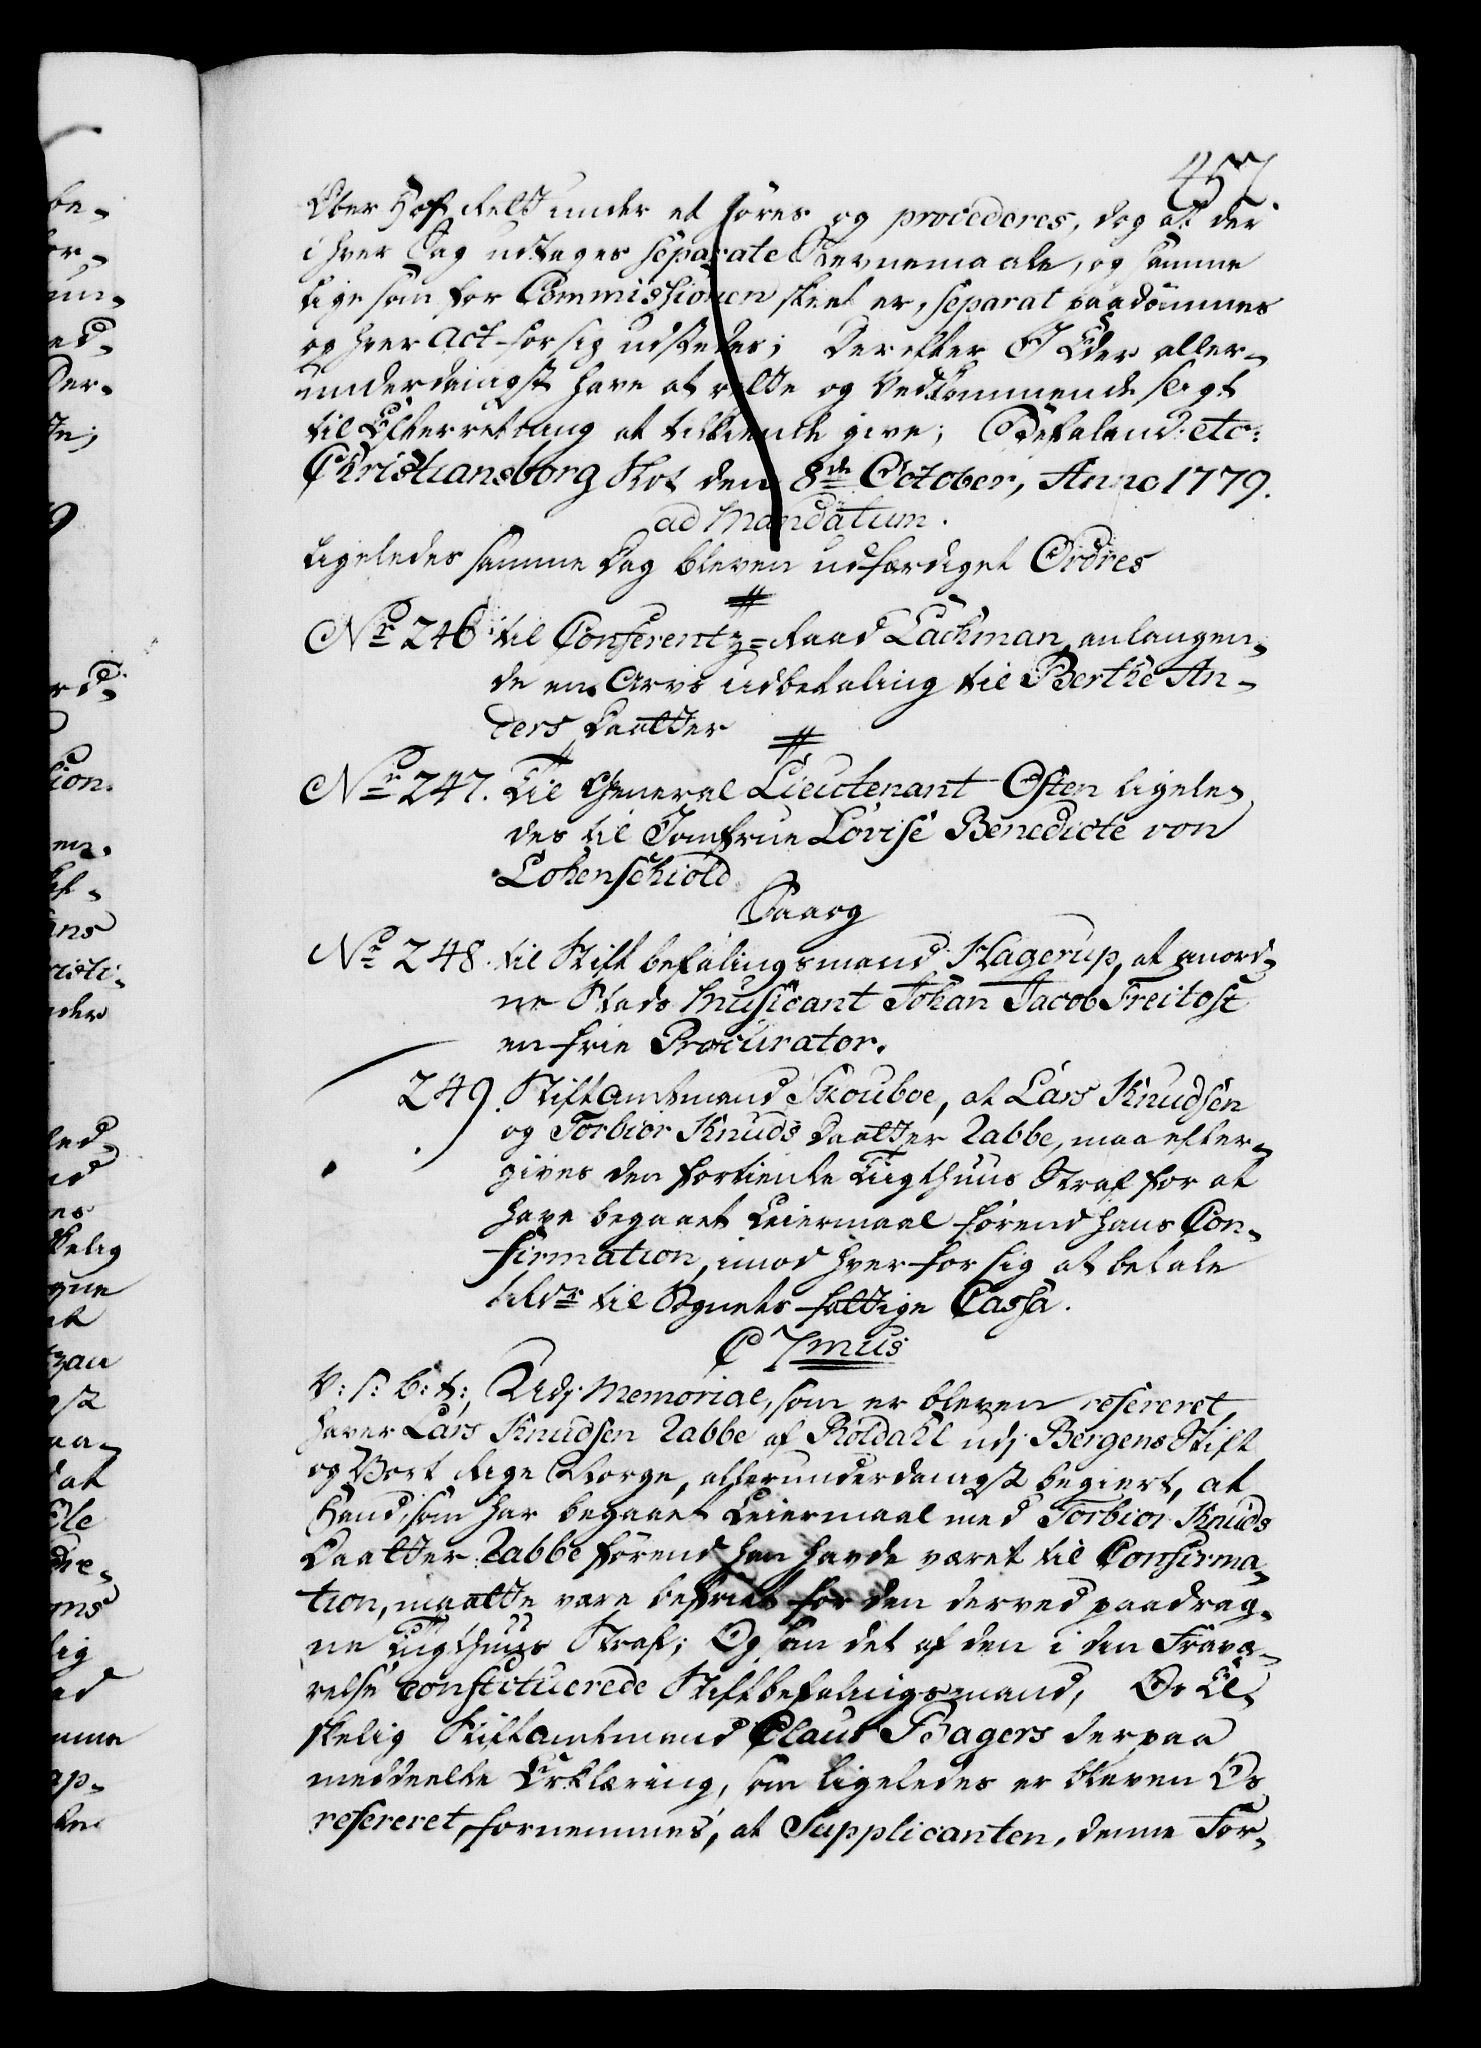 457.
Over Hof Rett under et høres og procederes, dog at der
i hver Sag udtages separate Stevnemaale, og samme
ligesom for Commissionen skeet er, separat paadømmes
og hver Act for sig udstedes; Derefter I Eder aller-
underdanigst have at rette og Vedkommende sligt
til Efterretning at tilkiende give; Befalend: etc:
Christiansborg Slot den 8de October, Anno 1779.
ad Mandatum.
Ligeledes samme Dag bleven udfærdiget Ordres
No 246 til Conferentz-Raad Lachman, anlangen-
de en Arvs udbetaling til Berthe An-
ders Daatter
No 247. Til General Lieutenant Osten ligele-
des til Jomfrue Lovise Benedicte von
Cohenschiold
Saavog
No 248. til Stiftbefalingsmand Hagerup, at anord-
ne Stads Musicant Johan Jacob Freitost
en frie Procurator.
249. Stiftamtmand Skouboe, at Lars Knudsen
og Torbior Knuds Daatter Rabbe, maa efter-
gives den fortiente Tugthuus Straf for at
have begaaet Leiermaal førend hans Con-
firmation, imod hver for sig at betale
til Sognets fattige Cassa.
C 7mus
V: s: b: t:, Udj Memorial, som er bleven refereret,
haver Lars Knudsen Rabbe af Röldahl udj Bergens Stift
og Vort Rige Norge, allerunderdanigst begiert, at
Hand, som har begaaet Leiermaal med Torbior Knuds
Daatter Rabbe førend han havde været til Confirma-
tion, maatte være befriet for den derved paadrag-
ne Tugthuus Straf; Og som det af den i den Fravæ-
relse constituerede Stiftbefalingsmand, Os El-
skelig Stiftamtmand Claus Bagers derpaa
meddeelte Erklæring, som ligeledes er bleven Os
refereret, fornemmes, at Supplicanten, denne For-